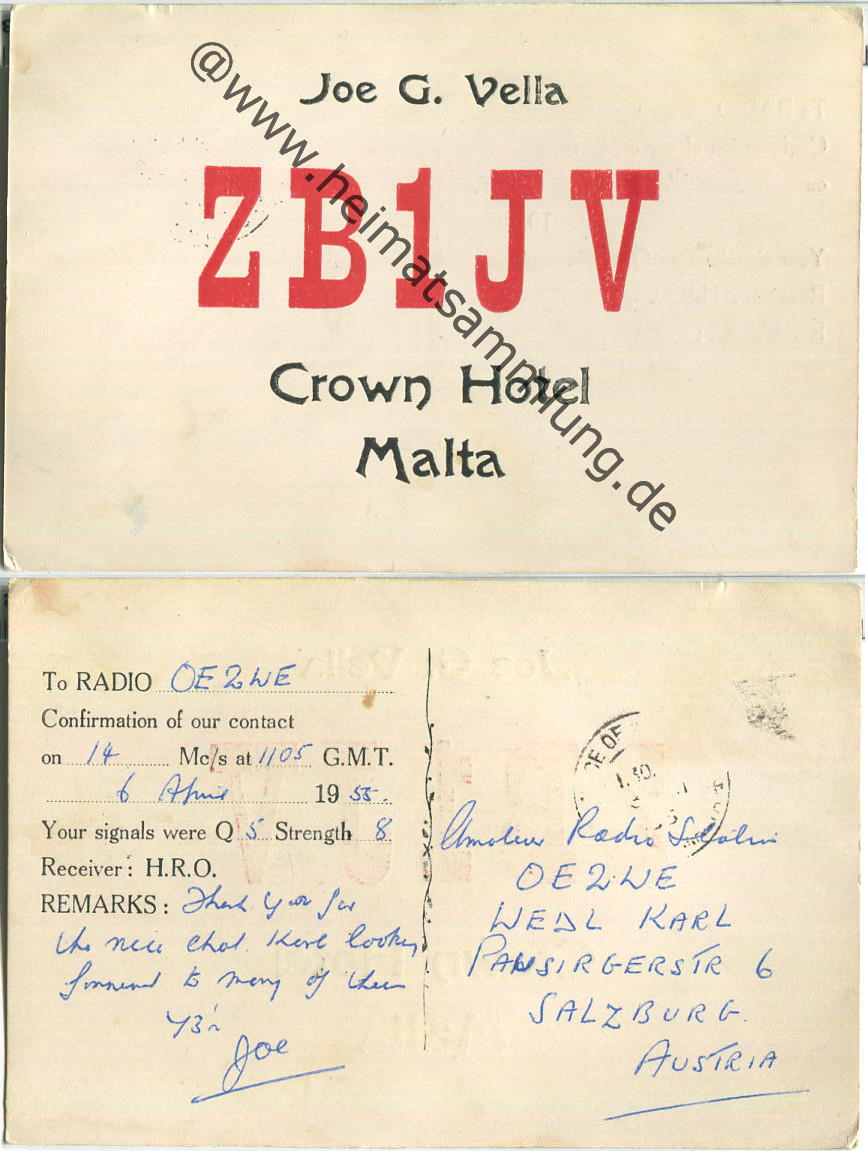 Joe G. Vella
ZB1JV
Crown Hotel
Malta
@www.heimatsammlung.de
To RADIO OE2WE
Confirmation of our contact
on 14 Mc/s at 1105 G.M.T.
6 April 1955.
Your signals were Q 5 Strength 8
Receiver: H.R.O.
REMARKS: Thank you for
the nice chat Karl looking
forward to many of them
73's
Joe
1.30
Amateur Radio Station
OE2WE
WEDL KARL
PANSIRGERSTR 6
SALZBURG.
AUSTRIA